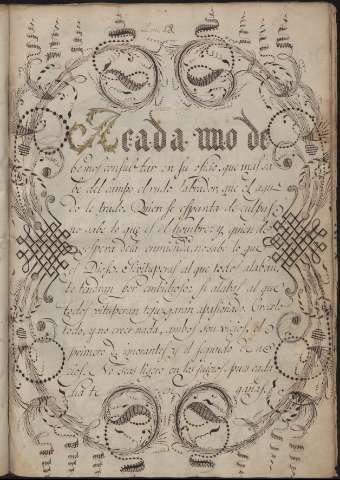 A cada uno de
bemos consultar en su oficio, que mas sa
be del campo el rudo labrador, que el agu
do letrado. Quien se espanta de culpas
no sabe lo que es el hombre; y quien de
espera de la enmienda, no sabe lo que
es Dios. Si vituperas al que todos alaban,
te tendran por embidioso: si alabas al que
todos vituperan te juzgaran apasionado. Creerlo
todo, y no creer nada, ambos son vicios, el
primero de ignorantes y el segundo de ne
cios. No seas ligero en los juycios, pues cada
dia te